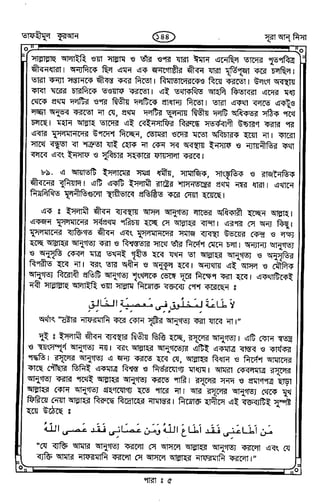 তাফহীমুল কুরআন
১৪৪
সূরা আন্ নিসা
সাল্লাল্লাহু আলাইহি ওয়া সাল্লাম ও তাঁর ওপর যারা ঈমান এনেছিল তাদের পূতপবিত্র
জীবনধারা। অন্যদিকে ছিল এমন এক জনগোষ্ঠীর জীবন যারা মূর্তিপূজা করে চলছিল।
তারা কন্যা সন্তানকে জীবন্ত কবর দিতো। বিমাতাদেরকেও বিয়ে করতো। উলংগ অবস্থায়
কাবা ঘরের চারদিকে তওয়াফ করতো। এই তথাকথিত আহলি কিতাবরা এদের মধ্য
থেকে প্রথম দলটির ওপর দ্বিতীয় দলটিকে প্রাধান্য দিতো। তারা একথা বলতে একটুও
লজ্জা অনুভব করতো না যে, প্রথম দলটির তুলনায় দ্বিতীয় দলটি অধিকতর সঠিক পথে
চলছে। মহান আল্লাহ তাদের এই বেইনসাফির বিরুদ্ধে সতর্কবাণী উচ্চারণ করার পর
এবার মুসলমানদের উপদেশ দিচ্ছেন, তোমরা ওদের মতো অবিচারক হয়ো না। কারো
সাথে বন্ধুতা বা শত্রুতা যাই হোক না কেন সব অবস্থায় ইনসাফ ও ন্যায়নীতির কথা
বলবে এবং ইনসাফ ও সুবিচার সহকারে ফায়সালা করবে।
৮৯. এ আয়াতটি ইসলামের সমগ্র ধর্মীয়, সামাজিক, সাংস্কৃতিক ও রাজনৈতিক
জীবনের বুনিয়াদ। এটি একটি ইসলামী রাষ্ট্রের শাসনতন্ত্রের প্রথম নম্বর ধারা। এখানে
নিম্নলিখিত মূলনীতিগুলো স্থায়ীভাবে প্রতিষ্ঠিত করে দেয়া হয়েছেঃ
এক : ইসলামী জীবন ব্যবস্থায় আসল আনুগত্য লাভের অধিকারী হচ্ছেন আল্লাহ।
একজন মুসলমানের সর্বপ্রথম পরিচয় হচ্ছে সে আল্লাহর বান্দা। এরপর সে অন্য কিছু।
মুসলমানের ব্যক্তিগত জীবন এবং মুসলমানদের সমাজ ব্যবস্থা উভয়ের কেন্দ্র ও লক্ষ্য
হচ্ছে আল্লাহর আনুগত্য করা ও বিশ্বস্ততার সাথে তাঁর নির্দেশ মেনে চলা। অন্যান্য আনুগত্য
ও অনুসৃতি কেবল মাত্র তখনই গৃহীত হবে যখন তা আল্লাহর আনুগত্য ও অনুসৃতির
বিপরীত হবে না। বরং তার অধীন ও অনুকূল হবে। অন্যথায় এই আসল ও মৌলিক
আনুগত্য বিরোধী প্রতিটি আনুগত্য শৃংখলকে ভেঙ্গে দূরে নিক্ষেপ করা হবে। একথাটিকেই
নবী সাল্লাল্লাহু আলাইহি ওয়া সাল্লাম নিম্নোক্ত বক্তব্যে পেশ করেছেন :
لَا طَاعَةَ لِمَخْلُوقٍ فِي مَعْصِيَةِ الْخَالِقِ
অর্থাৎ "স্রষ্টার নাফরমানি করে কোন সৃষ্টির আনুগত্য করা যাবে না।"
দুই : ইসলামী জীবন ব্যবস্থার দ্বিতীয় ভিত্তি হচ্ছে, রসূলের আনুগত্য। এটি কোন স্বতন্ত্র
ও স্বয়ংসম্পূর্ণ আনুগত্য নয়। বরং আল্লাহর আনুগত্যের এটিই একমাত্র বাস্তব ও কার্যকর
পদ্ধতি। রসূলের আনুগত্য এ জন্য করতে হবে যে, আল্লাহর বিধান ও নির্দেশ আমাদের
কাছে পৌঁছার তিনিই একমাত্র বিশ্বস্ত ও নির্ভরযোগ্য মাধ্যম। আমরা কেবলমাত্র রসূলের
আনুগত্য করার পথেই আল্লাহর আনুগত্য করতে পারি। রসূলের সনদ ও প্রমাণপত্র ছাড়া
আল্লাহর কোন আনুগত্য গ্রহণযোগ্য হতে পারে না। আর রসূলের আনুগত্য থেকে মুখ
ফিরিয়ে নেয়া আল্লাহর বিরুদ্ধে বিদ্রোহের নামান্তর। নিম্নোক্ত হাদীসে এই বক্তব্যটিই সুস্পষ্ট
হয়ে উঠেছে :
مَنْ أَطَاعَنِي فَقَدْ أَطَاعَ اللهَ وَمَنْ عَصَانِي فَقَدْ عَصَى اللهَ
"যে ব্যক্তি আমার আনুগত্য করলো সে আসলে আল্লাহর আনুগত্য করলো এবং যে
ব্যক্তি আমার নাফরমানি করলো সে আসলে আল্লাহর নাফরমানি করলো।"
পারা : ৫